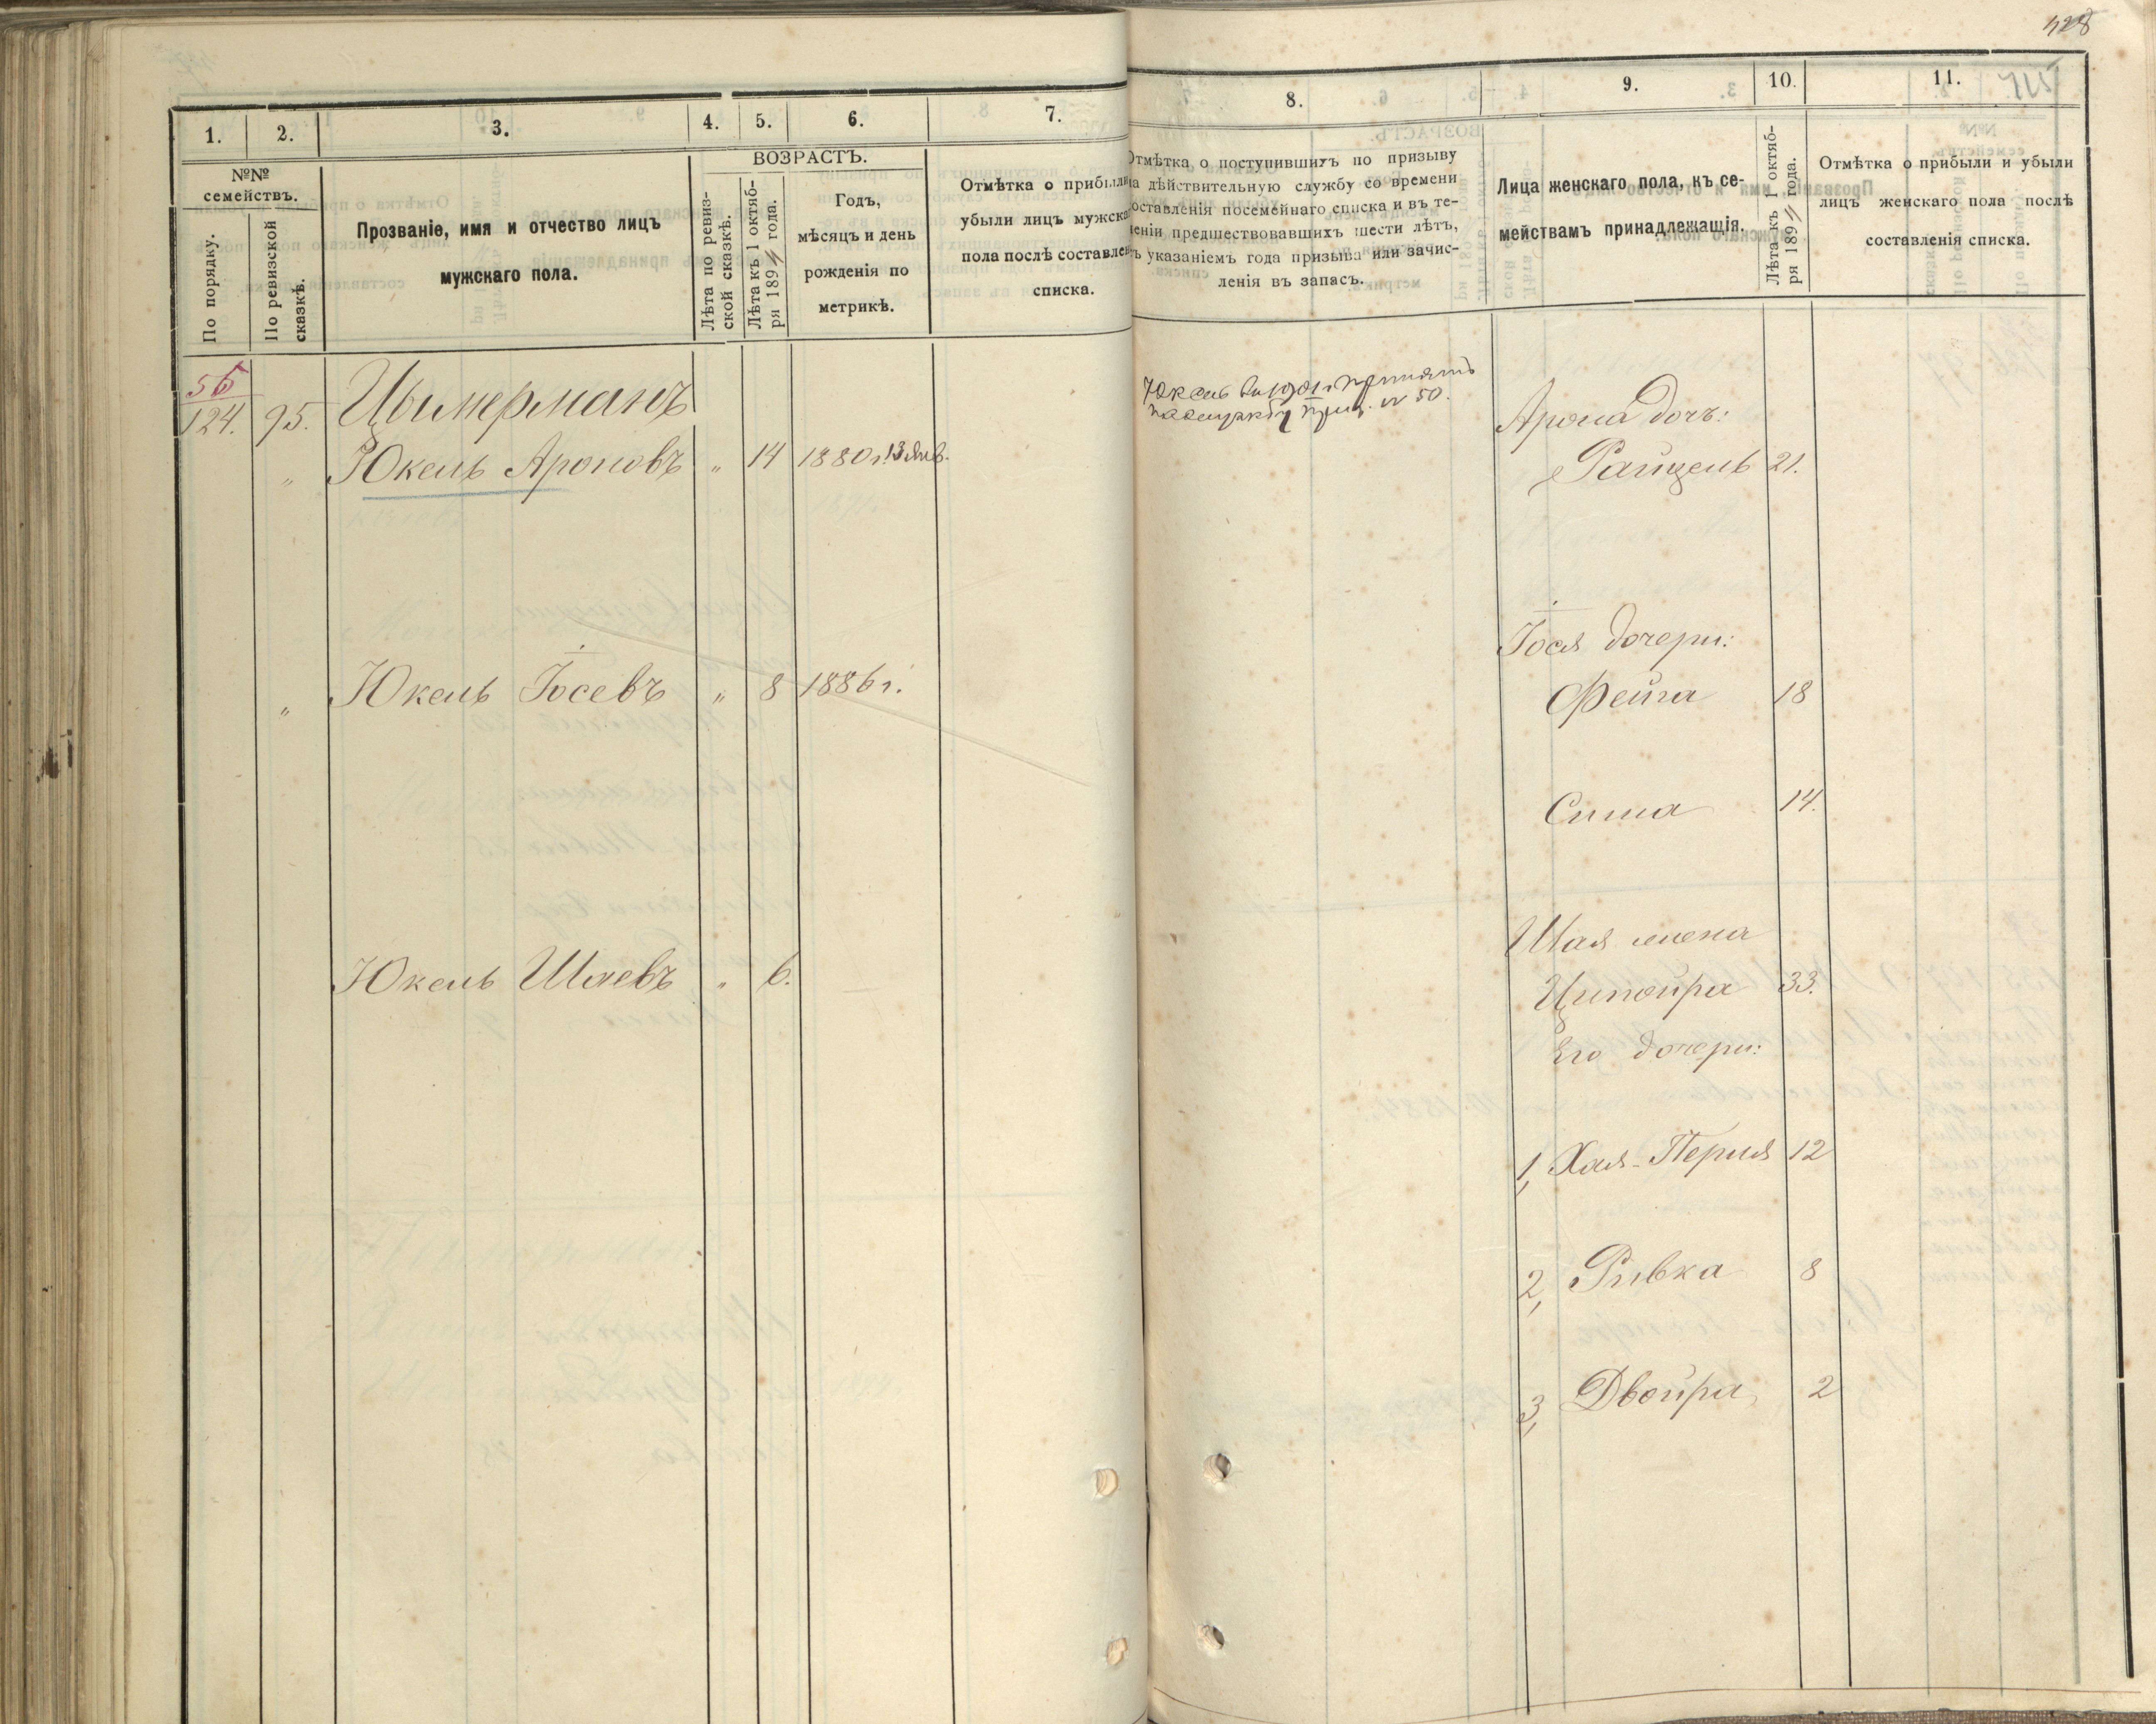 428
1. 2. 3. 4. 5. 6. 7.
№№ семействъ.
По порядку.
По ревизской сказкѣ.
Прозваніе, имя и отчество лицъ
мужскаго пола.
ВОЗРАСТЪ.
Лѣта по ревиз-
ской сказкѣ.
Лѣта къ 1 октяб-
ря 1894 года.
Годъ,
мѣсяцъ и день
рожденія по
метрикѣ.
Отмѣтка о прибыли
убыли лицъ мужска
пола послѣ составлен
списка.
56
124. 95. Цымерманъ
" Юкель Ароновъ " 14 1880 г. 13 Янв.
" Юкель Іосевъ " 8 1886 г.
Юкель Шаевъ " 6.
8. 9. 10. 11.
Отмѣтка о поступившихъ по призыву
на дѣйствительную службу со времени
составленія посемейнаго списка и въ те-
ченіи предшествовавшихъ шести лѣтъ,
съ указаніемъ года призыва или зачис-
ленія въ запасъ.
Лица женскаго пола, къ се-
мействамъ принадлежащія.
Лѣта къ 1 октяб-
ря 1894 года.
Отмѣтка о прибыли и убыли
лицъ женскаго пола послѣ
составленія списка.
Юкель въ 1901 г. принятъ
на службу приз. № 50.
Арона дочь:
Райцель 21.
Іося дочери:
Фейга 18
Сима 14.
Шая жена
Ципойра 33.
Его дочери:
1, Хая-Перля 12
2, Ривка 8
3, Двойра 2